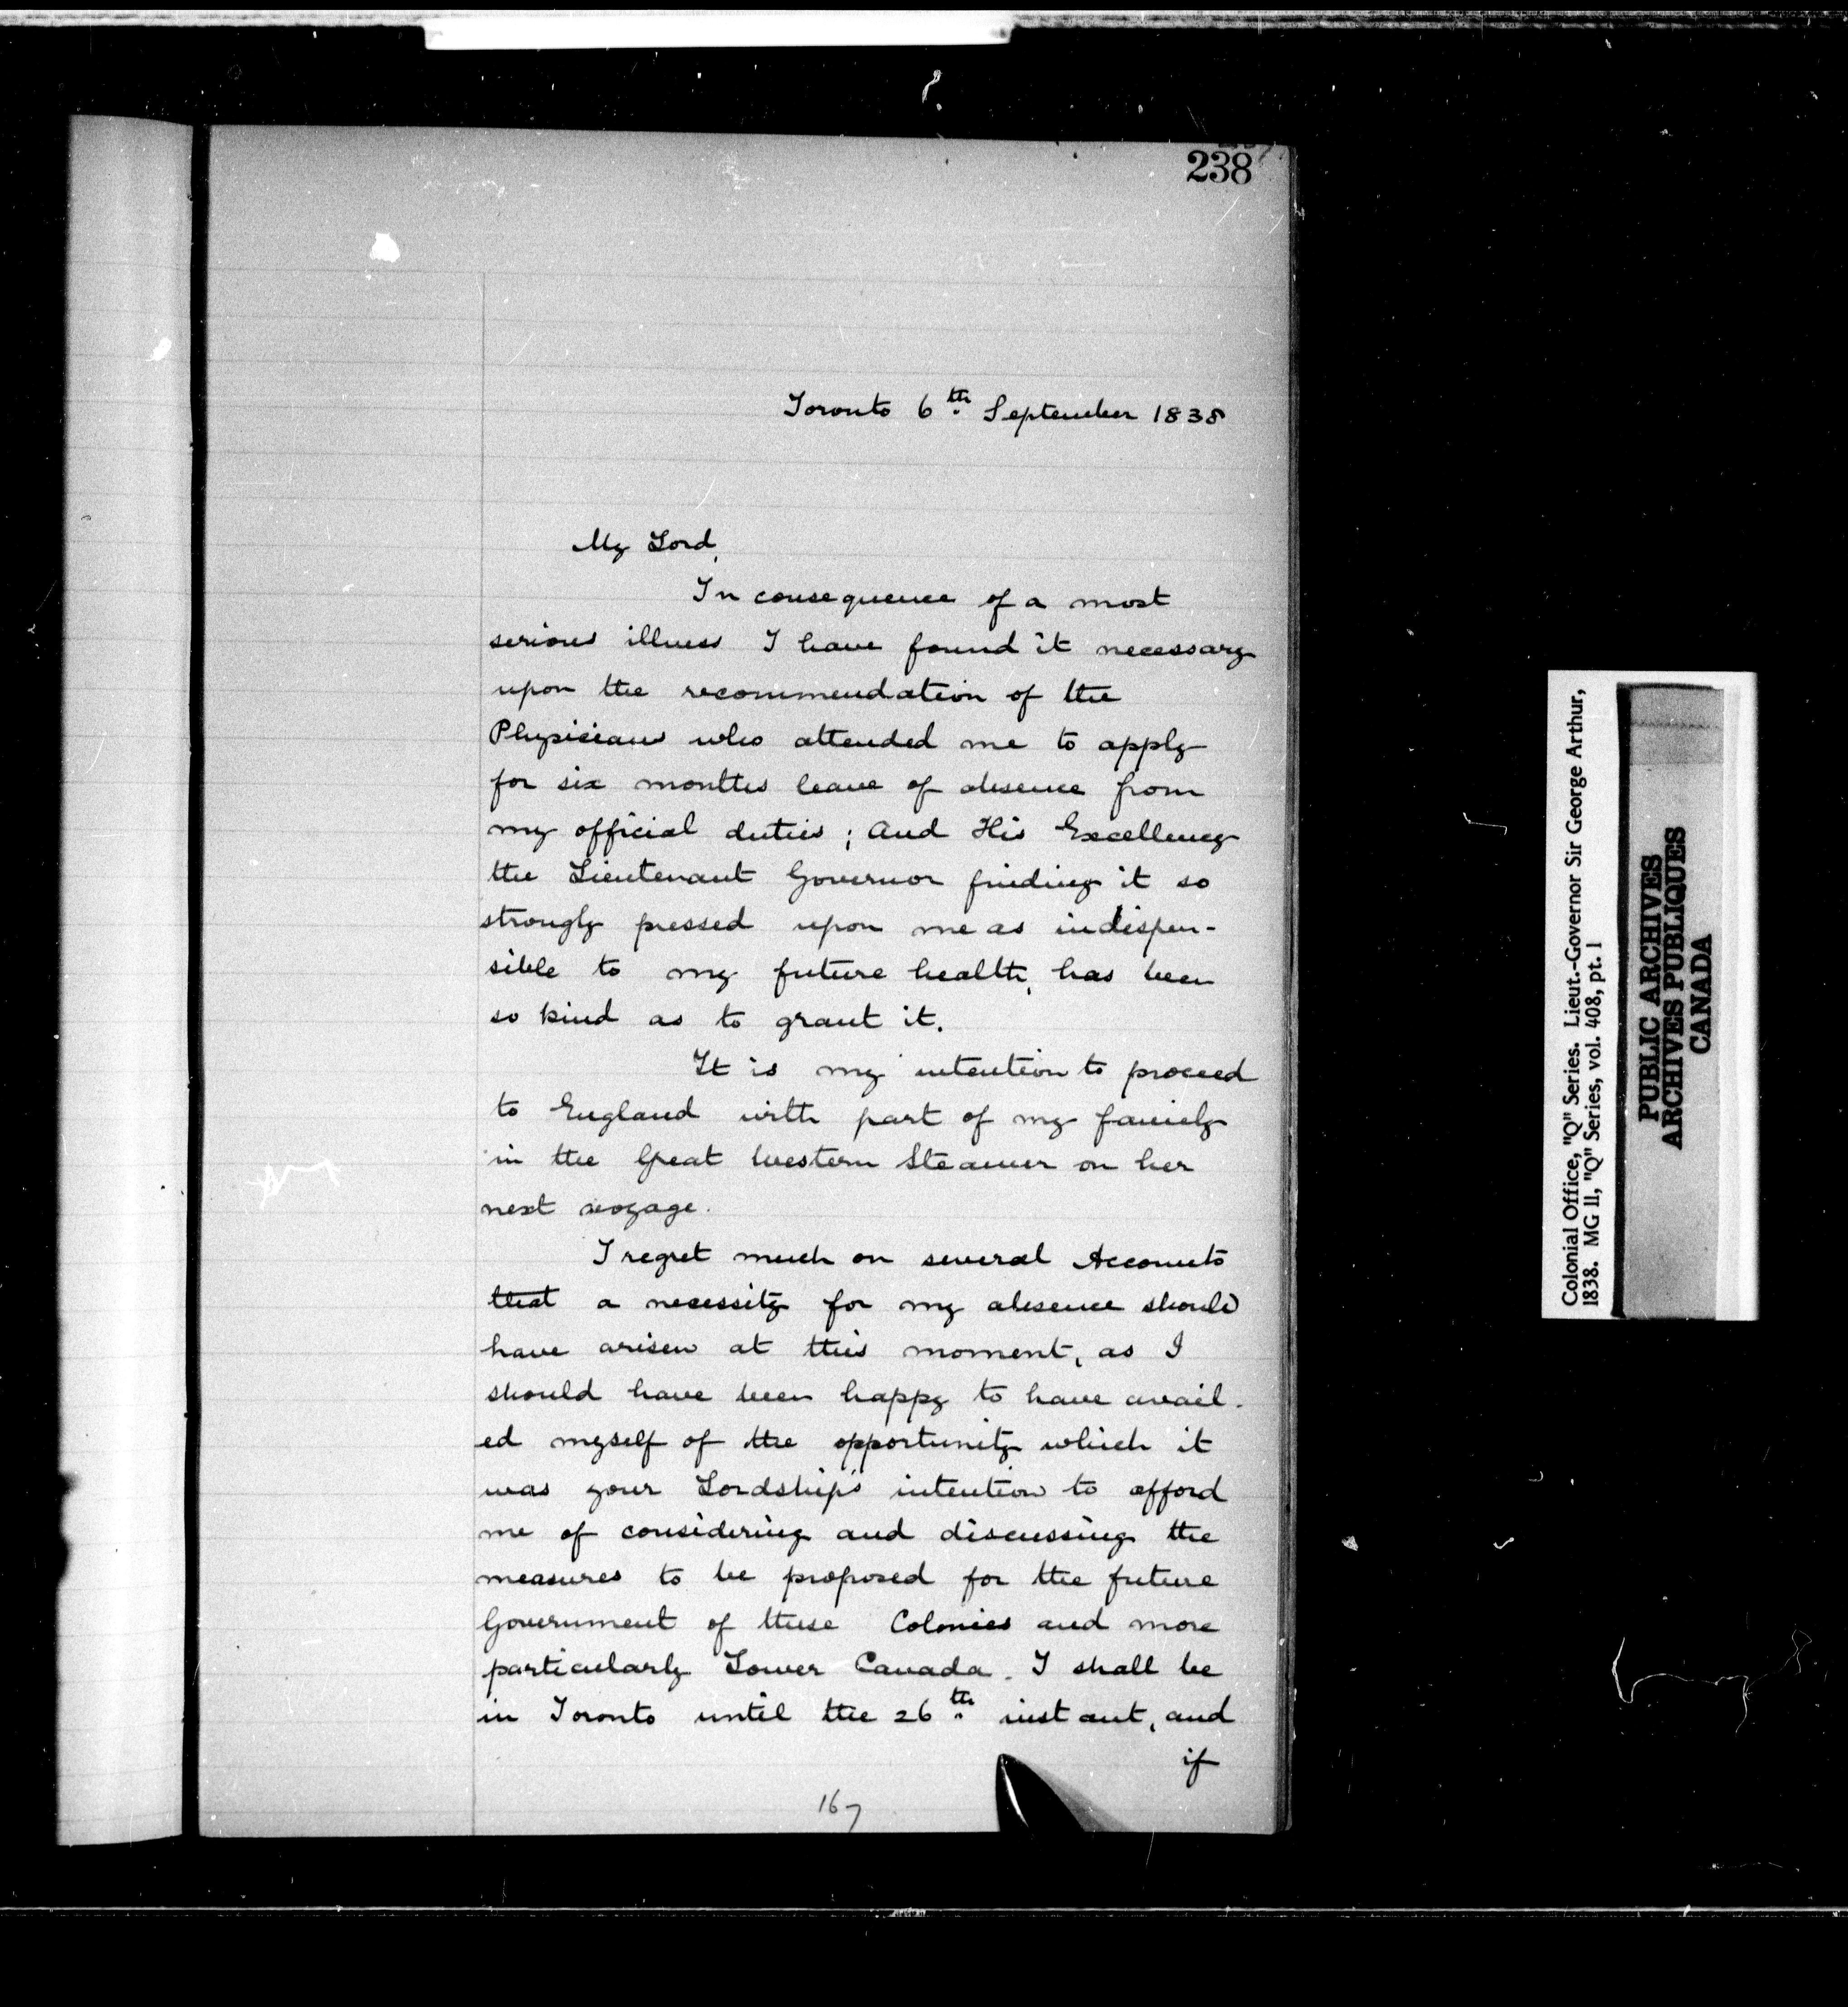 238
Toronto 6th September 1838
My Lord,
In consequence of a most
serious illness I have found it necessary
upon the recommendation of the
Physicians who attended me to apply
for six months leave of absence from
my official duties; And His Excellency
the Lieutenant Governor finding it so
strongly pressed upon me as indispen-
sible to my future health, has been
so kind as to grant it.
It is my intention to proceed
to England with part of my family
in the Great Western Steamer on her
next voyage.
I regret much on several Accounts
that a necessity for my absence should
have arisen at this moment, as I
should have been happy to have avail-
ed myself of the opportunity which it
was your Lordship's intention to afford
me of considering and discussing the
measures to be proposed for the future
Government of these Colonies and more
particularly Lower Canada. I shall be
in Toronto until the 26th instant, and
if
167
Colonial Office, "Q" Series. Lieut.-Governor Sir George Arthur,
1838. MG 11, "Q" Series, vol. 408, pt. 1
PUBLIC ARCHIVES
ARCHIVES PUBLIQUES
CANADA